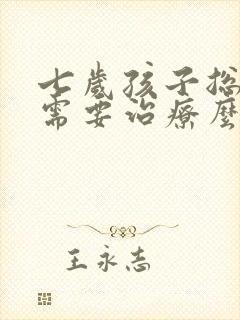 七歲孩子總
需要治療麼
王永志